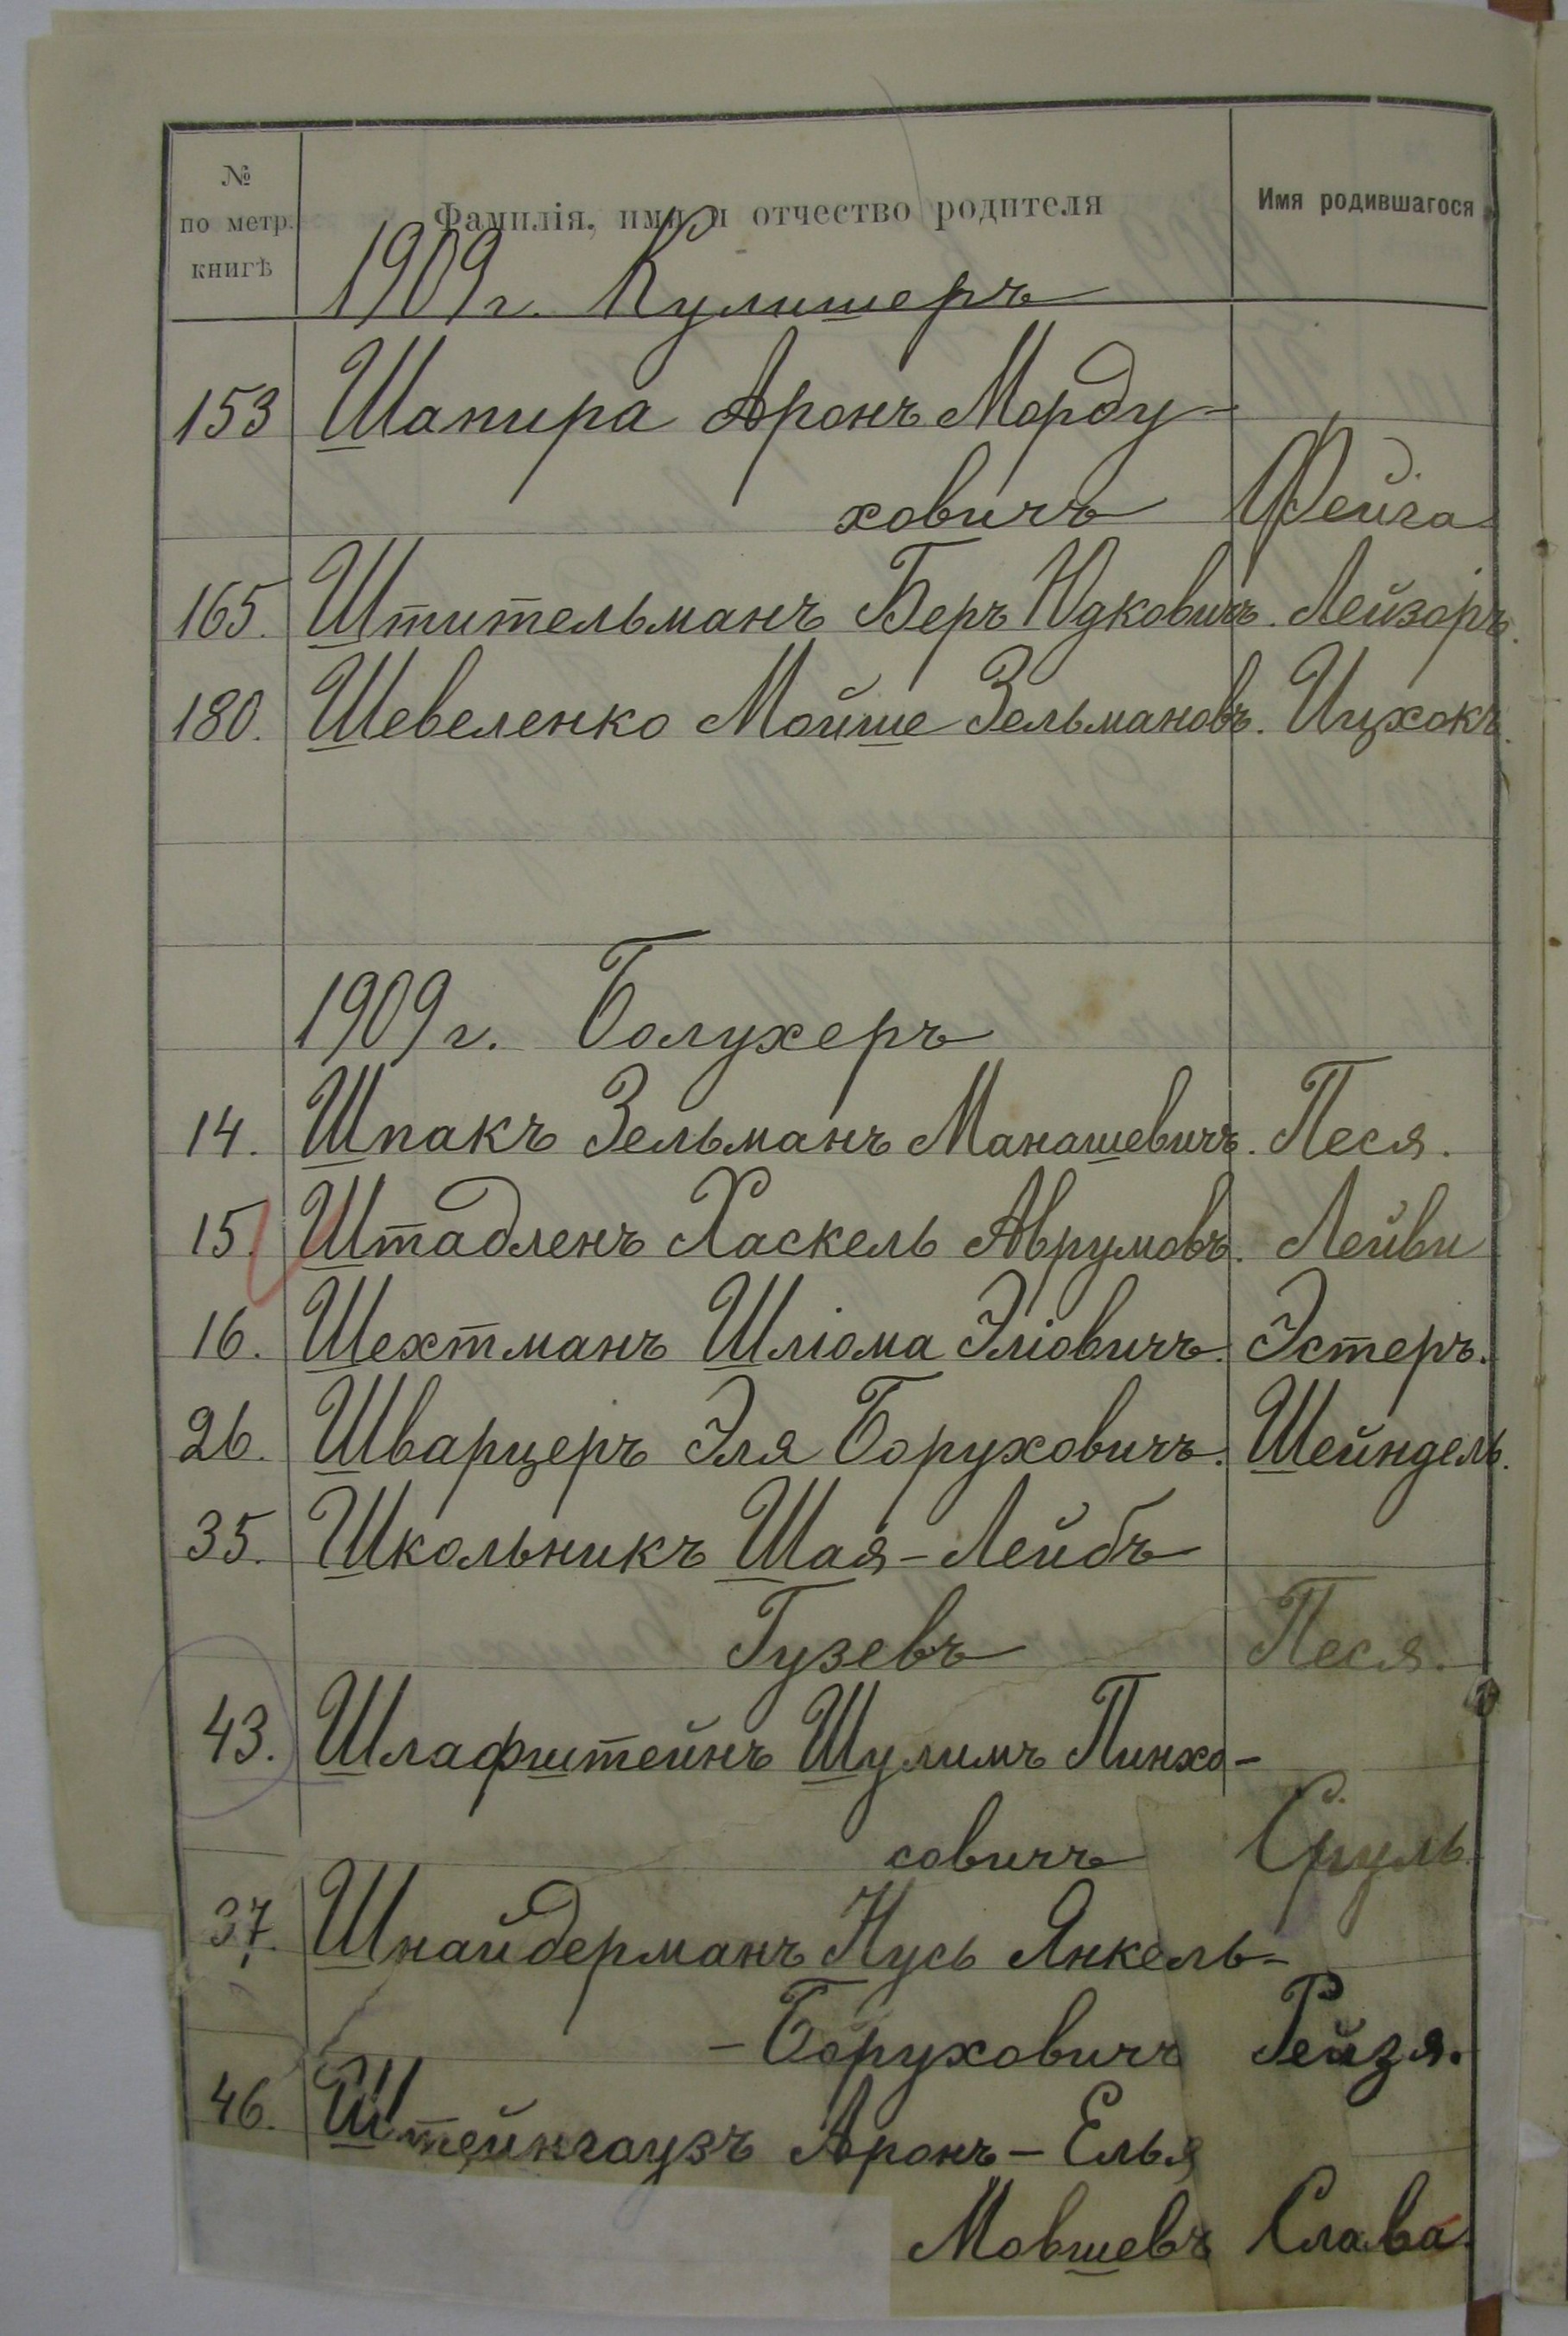 № по метр. книгѣ Фамилія, имя и отчество родителя Имя родившагося
1909 г. Кулишеръ
153 Шапира Аронъ Морду-
ховичъ Фейга
165. Штительманъ Беръ Юдковичъ. Лейзоръ.
180. Шевеленко Мойше Зельмановъ. Ицхокъ.
1909 г. Болухеръ
14. Шпакъ Зельманъ Манашевичъ. Песя.
15. Штадленъ Хаскель Аврумовъ. Лейви
16. Шехтманъ Шліома Эліовичъ. Эстеръ.
26. Шварцеръ Эля Боруховичъ. Шейндель.
35. Школьникъ Шая-Лейбъ
Гузевъ Песя.
43. Шлафштейнъ Шулимъ Пинхо-
совичъ Сруль
37. Шнайдерманъ Нусь Янкель-
-Боруховичъ Рейзя.
46. Штейнгаузъ Аронъ-Елья
Мовшевъ Слава.